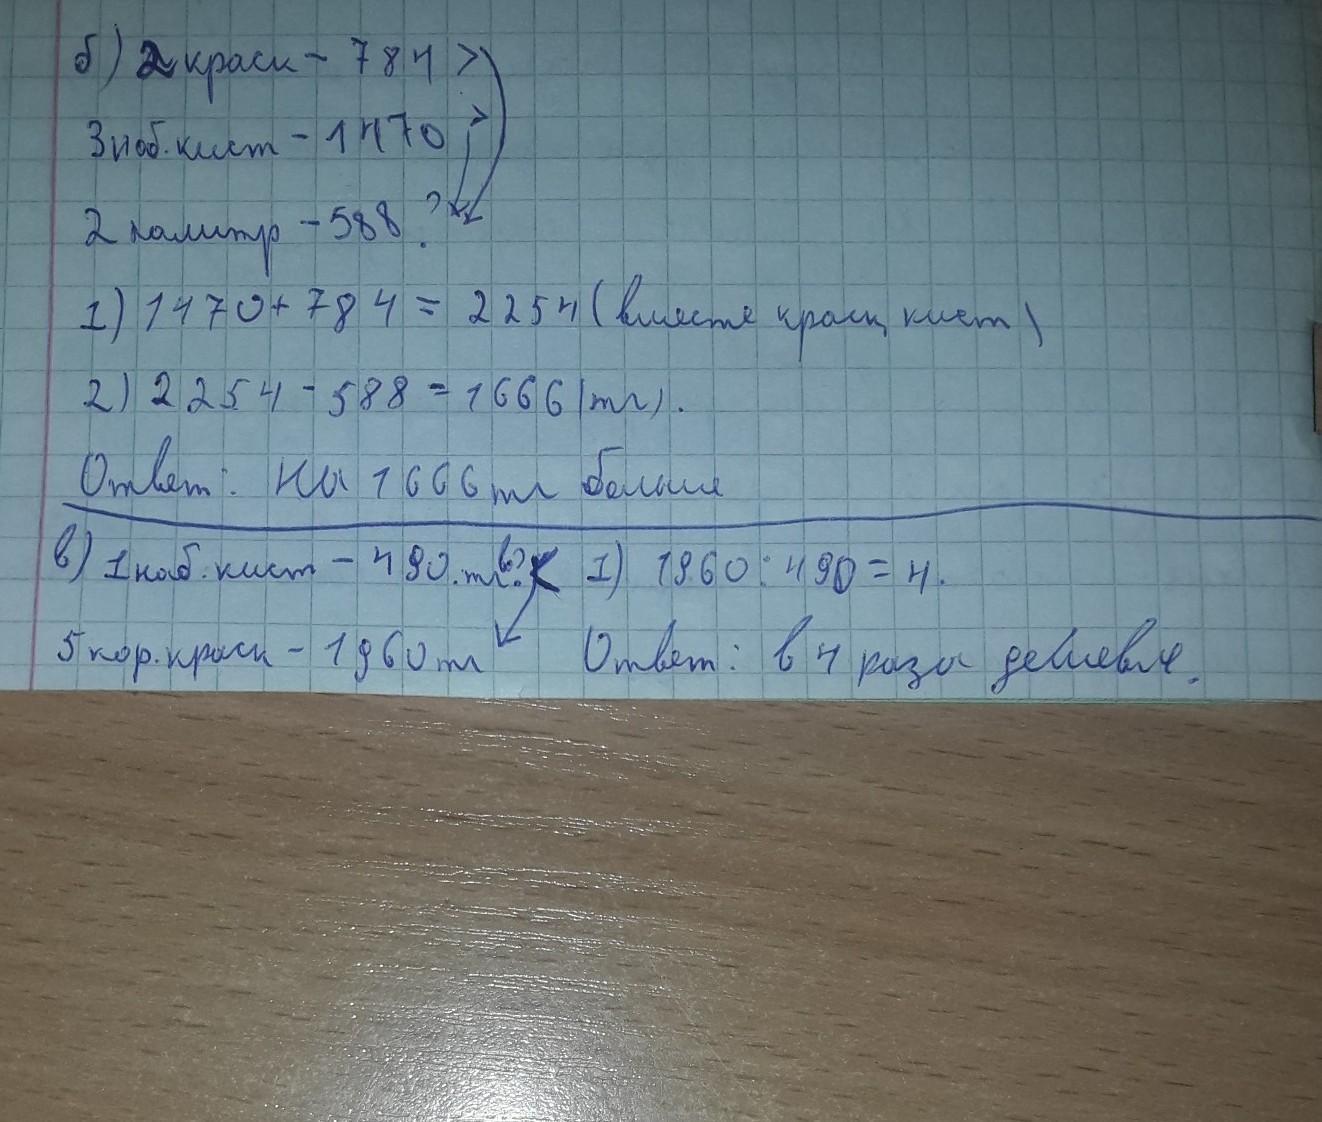 б) 2 краски - 784 >
3 наб. кист - 1470 >
2 палитр - 588 ?
1) 1470 + 784 = 2254 (вместе краск, кист)
2) 2254 - 588 = 1666 (тг).
Ответ: на 1666 тг больше
в) 1 наб. кист - 490. тг в? <
1) 1960 : 490 = 4.
5 кор. краск - 1960 тг
Ответ: в 4 раза дешевле.